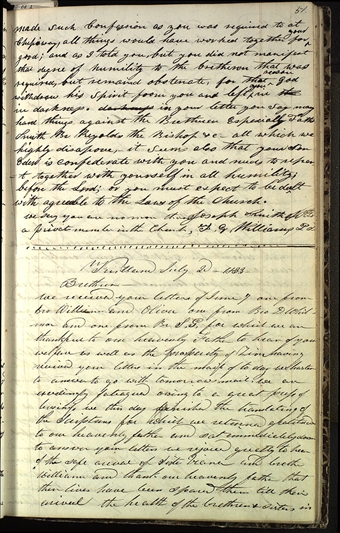 51
made such Confession as you was required to at
Chipaway all things would have worked together for your
good; and as I told you but you did not manifest
that degree of humility to the brethren that was
required, but remained obstinate, for that reason God
withdrew his Spirit from you and left you
in darkness. in your letter you say many
hard things against the Brethren Especially
Smith Br Rigdon the Bishop &c all which we
highly disapprove, it seems also that your son
Eden is confederate with you and needs to repen
t together with yourself in all humility
before the Lord; or you must expect to be dealt
with agreeable to the Laws of the Church.
we say you are no more than
a privet member in the Church, F. G. Williams
Kirtland July 2d 1833
Brethren
We received your letters of June 7 one from
bro William and Oliver one from Bro D Whit
mer and one from Br S. G. for which we are
thankful to our heavenly Father to hear of your
welfare as well as the prosperity of Zion having
received your letters in the mail of to day we hasten
to answer to go with tomorrow mail we are
exceedingly fatigued owing to a great press of
business we this day finished the translating of
the Scriptures for which we returned gratitude
to our heavenly father and sat immediately down
to answer your letters we rejoice greatly to hear
of the safe arrival of and broth
William and thank our heavenly father that
their lives have been spared them till their
arrival the health of the brethren & sisters in